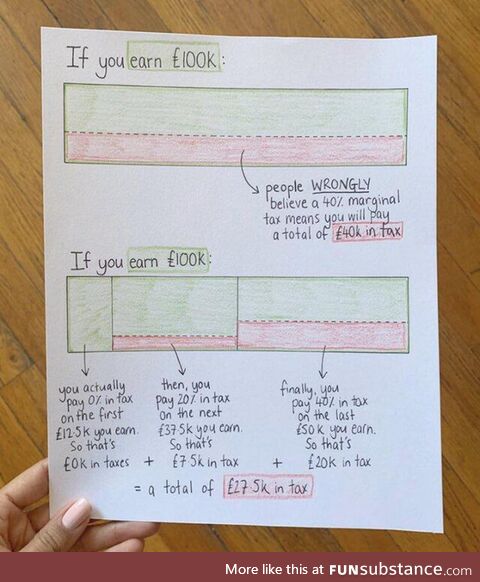 If you earn £100K:
people WRONGLY
believe a 40% marginal
tax means you will pay
a total of £40k in tax
If you earn £100K:
you actually
pay 0% in tax
on the first
£12.5k you earn.
So that's
£0k in taxes
then, you
pay 20% in tax
on the next
£37.5k you earn.
So that's
+ £7.5k in tax
finally, you
pay 40% in tax
on the last
£50k you earn.
So that's
+ £20k in tax
= a total of £27.5k in tax
More like this at FUNsubstance.com!